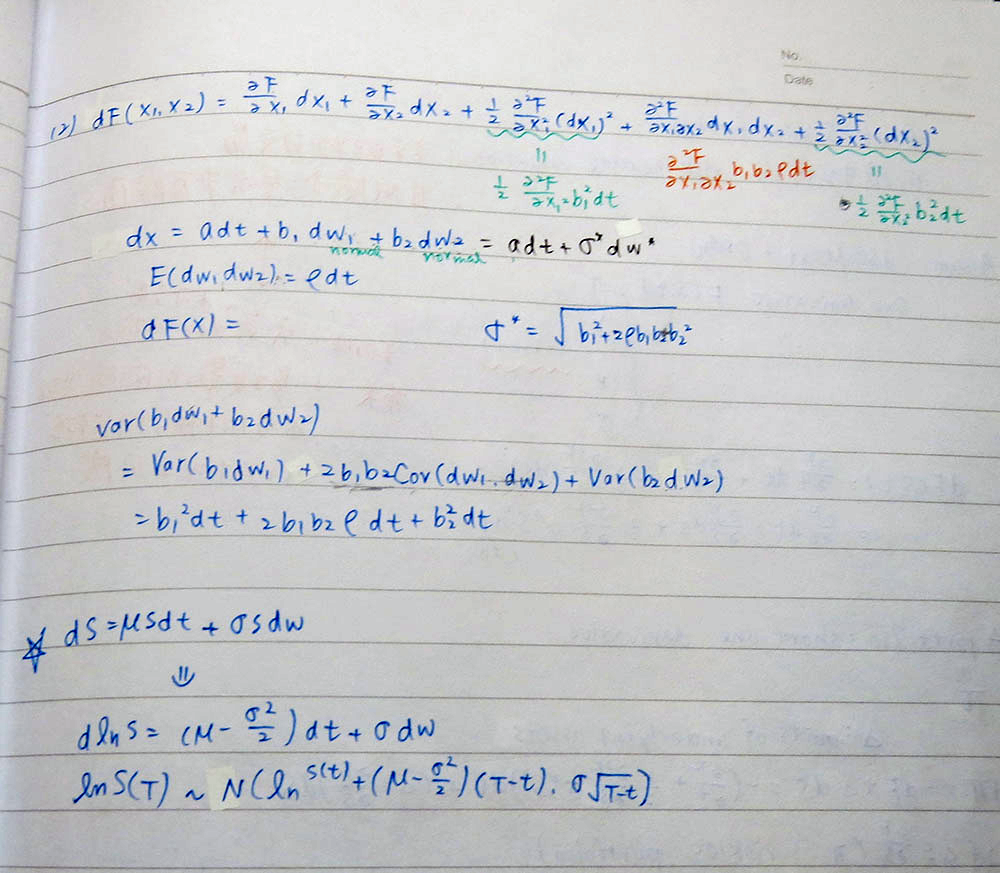 No.
Date
(2) dF(x₁, x₂) = ∂F/∂x₁ dx₁ + ∂F/∂x₂ dx₂ + 1/2 ∂²F/∂x₁² (dx₁)² + ∂²F/∂x₁∂x₂ dx₁ dx₂ + 1/2 ∂²F/∂x₂² (dx₂)²
|| ∂²F/∂x₁∂x₂ b₁b₂ρdt ||
1/2 ∂²F/∂x₁² b₁²dt 1/2 ∂²F/∂x₂² b₂²dt
dx = adt + b₁ dw₁ + b₂dw₂ = adt + σ* dw*
normal normal
E(dw₁dw₂) = ρdt
dF(X) = σ* = √(b₁²+2ρb₁b₂b₂²)
Var(b₁dw₁ + b₂dw₂)
= Var(b₁dw₁) + 2b₁b₂Cov(dw₁, dw₂) + Var(b₂dw₂)
= b₁²dt + 2b₁b₂ρdt + b₂²dt
☆ dS = μSdt + σSdw
⇓
dlnS = (μ - σ²/2)dt + σdw
lnS(T) ~ N(ln S(t) + (μ - σ²/2)(T-t), σ√(T-t))